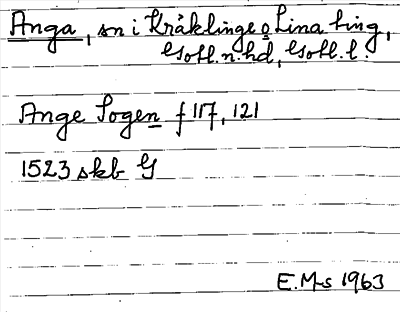 Anga, sn i Kräklinge o Lina ting,
Gotl. n. hd, Gotl. l.
Ange Sogen f 117, 121
1523 skb G
E.M-s 1963